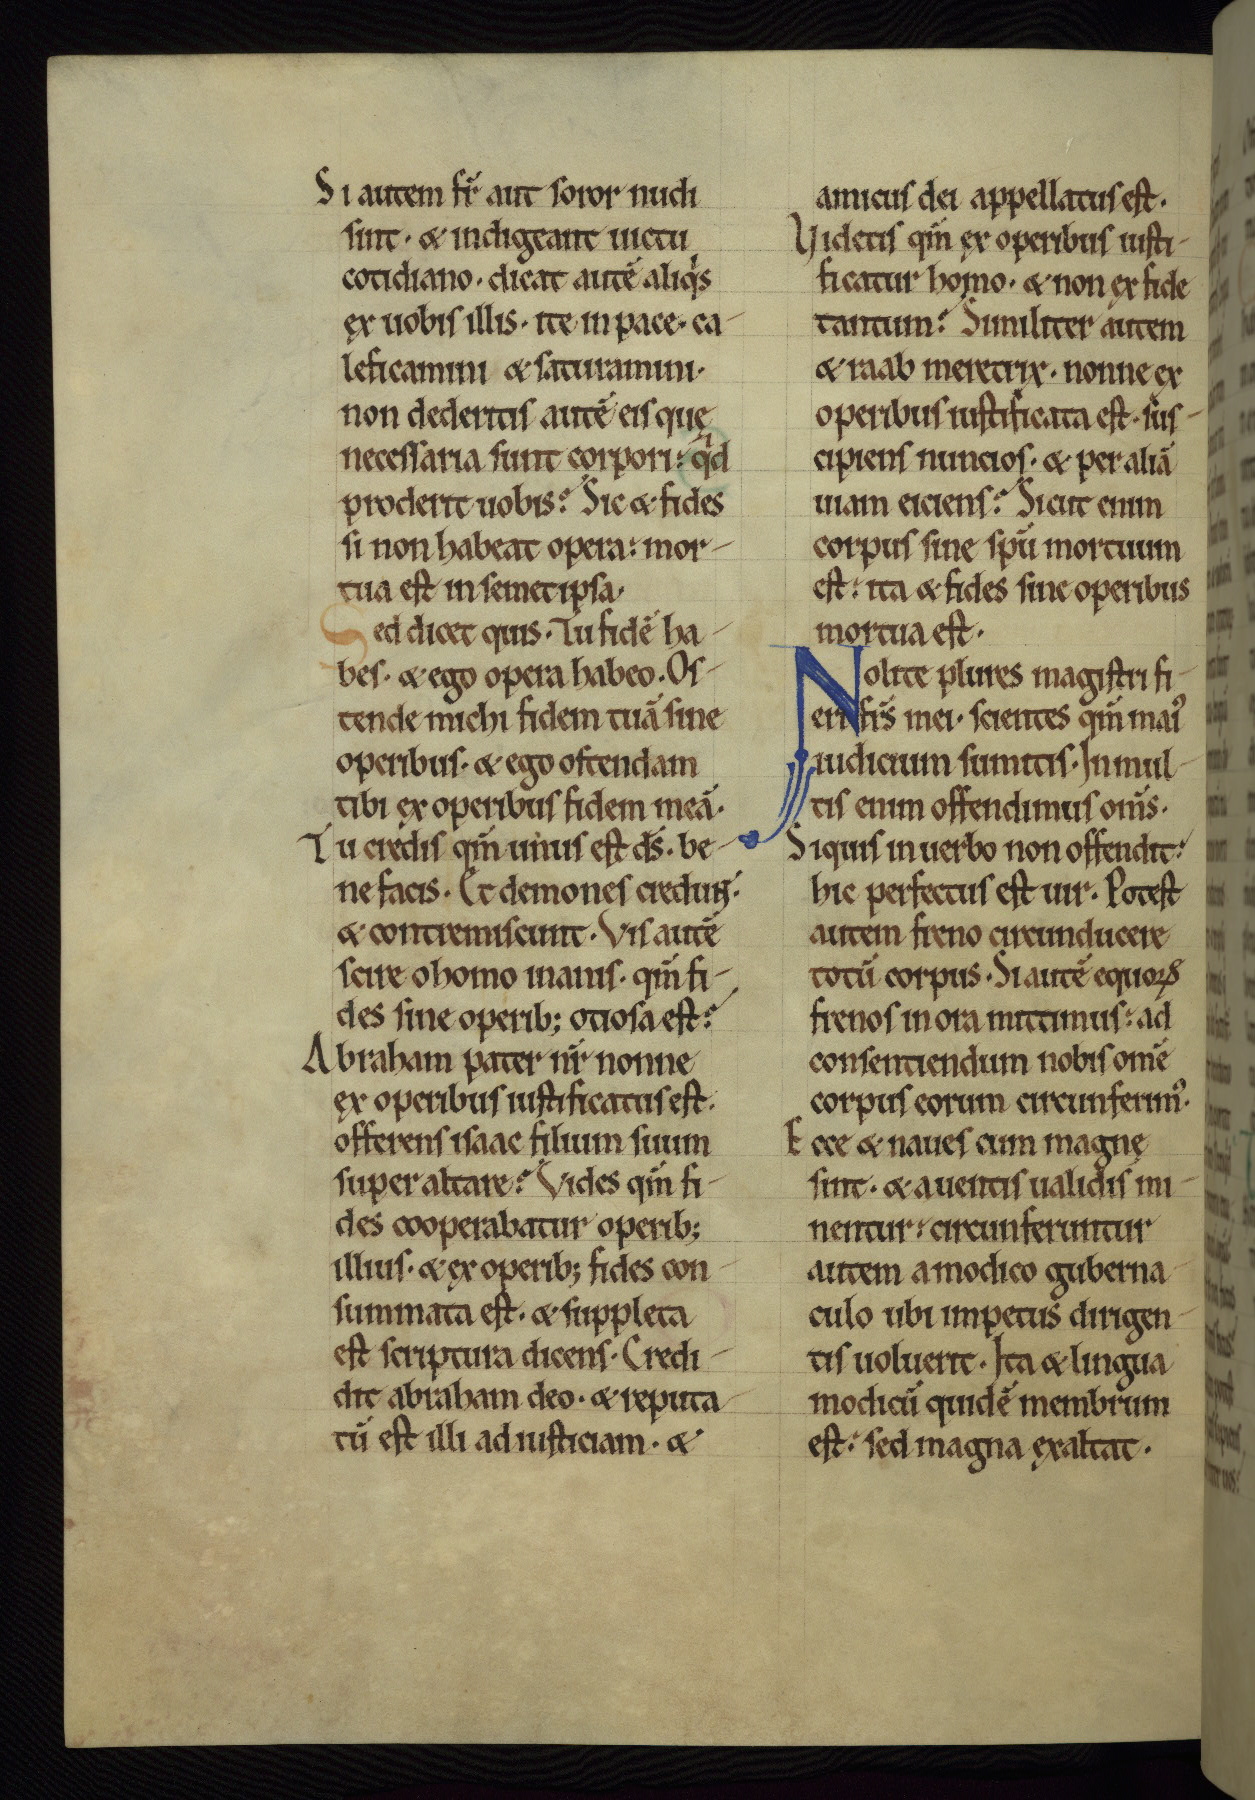 Si autem fr̄ aut soror nudi
sint· & indigeant uictu
cotidiano· dicat autē aliq͛s
ex uobis illis· ite in pace· ca-
leficamini & saturamini·
non dederitis autē eis quę
necessaria sunt corpori: qͥd
proderit uobis? Sic & fides
si non habeat opera: mor-
tua est in semetipsa·
Sed dicet quis· Tu fidē ha-
bes· & ego opera habeo· Os-
tende michi fidem tuā sine
operibus· & ego ostendam
tibi ex operibus fidem meā·
Tu credis qm̄ unus est ds̄· be-
ne facis· Et demones credunt·
& contremiscunt· Vis autē
scire o homo inanis· qm̄ fi-
des sine operib; otiosa est?
Abraham pater nr̄ nonne
ex operibus iustificatus est·
offerens isaac filium suum
super altare? Vides qm̄ fi-
des cooperabatur operib;
illius· & ex operib; fides con-
summata est· & suppleta
est scriptura dicens· Credi-
dit abraham deo· & reputa-
tū est illi ad iusticiam· &
amicus dei appellatus est·
Videtis qm̄ ex operibus iusti-
ficatur homo· & non ex fide
tantum? Similiter autem
& raab meretrix· nonne ex
operibus iustificata est· sus-
cipiens nuncios· & per aliā
uiam eiciens? Sicut enim
corpus sine spū mortuum
est: ita & fides sine operibus
mortua est·
Nolite plures magistri fi-
eri frs̄ mei· scientes qm̄ maiꝰ
iudicium sumitis· In mul-
tis enim offendimus om̄s·
Siquis in uerbo non offendit:
hic perfectus est uir· Potest
autem freno circunducere
totū corpus· Si autē equoꝝ
frenos in ora mittimus: ad
consentiendum nobis om̄e
corpus eorum circunferimꝰ·
Ecce & naues cum magnę
sint· & a uentis ualidis mi-
nentur: circunferuntur
autem a modico guberna-
culo ubi impetus dirigen-
tis uoluerit· Ita & lingua
modicū quidē membrum
est: sed magna exaltat·